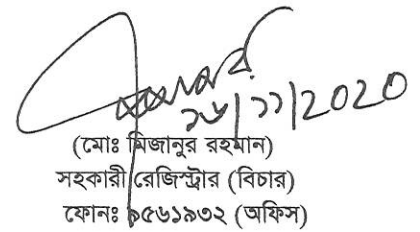 ১৬/১১/2020
(মোঃ মিজানুর রহমান)
সহকারী রেজিস্ট্রার (বিচার)
ফোনঃ ৯৫৬১৯৩২ (অফিস)